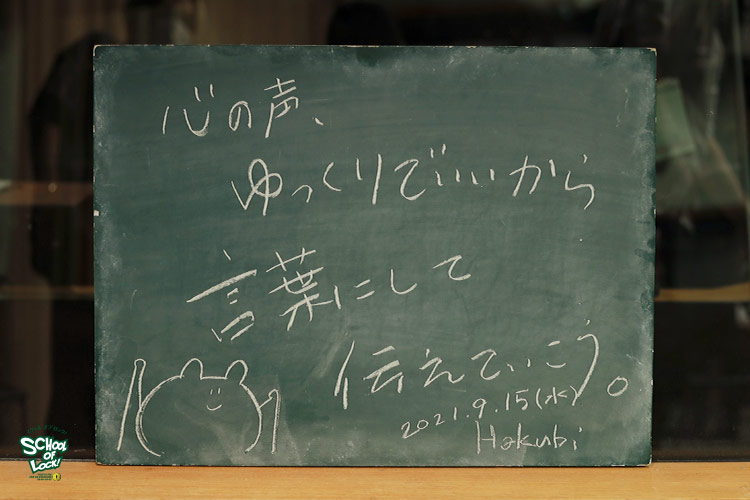 心の声、
ゆっくりでいいから
言葉にして
伝えていこう。
2021.9.15(水)
Hakubi
SCHOOL
OF
LOCK!